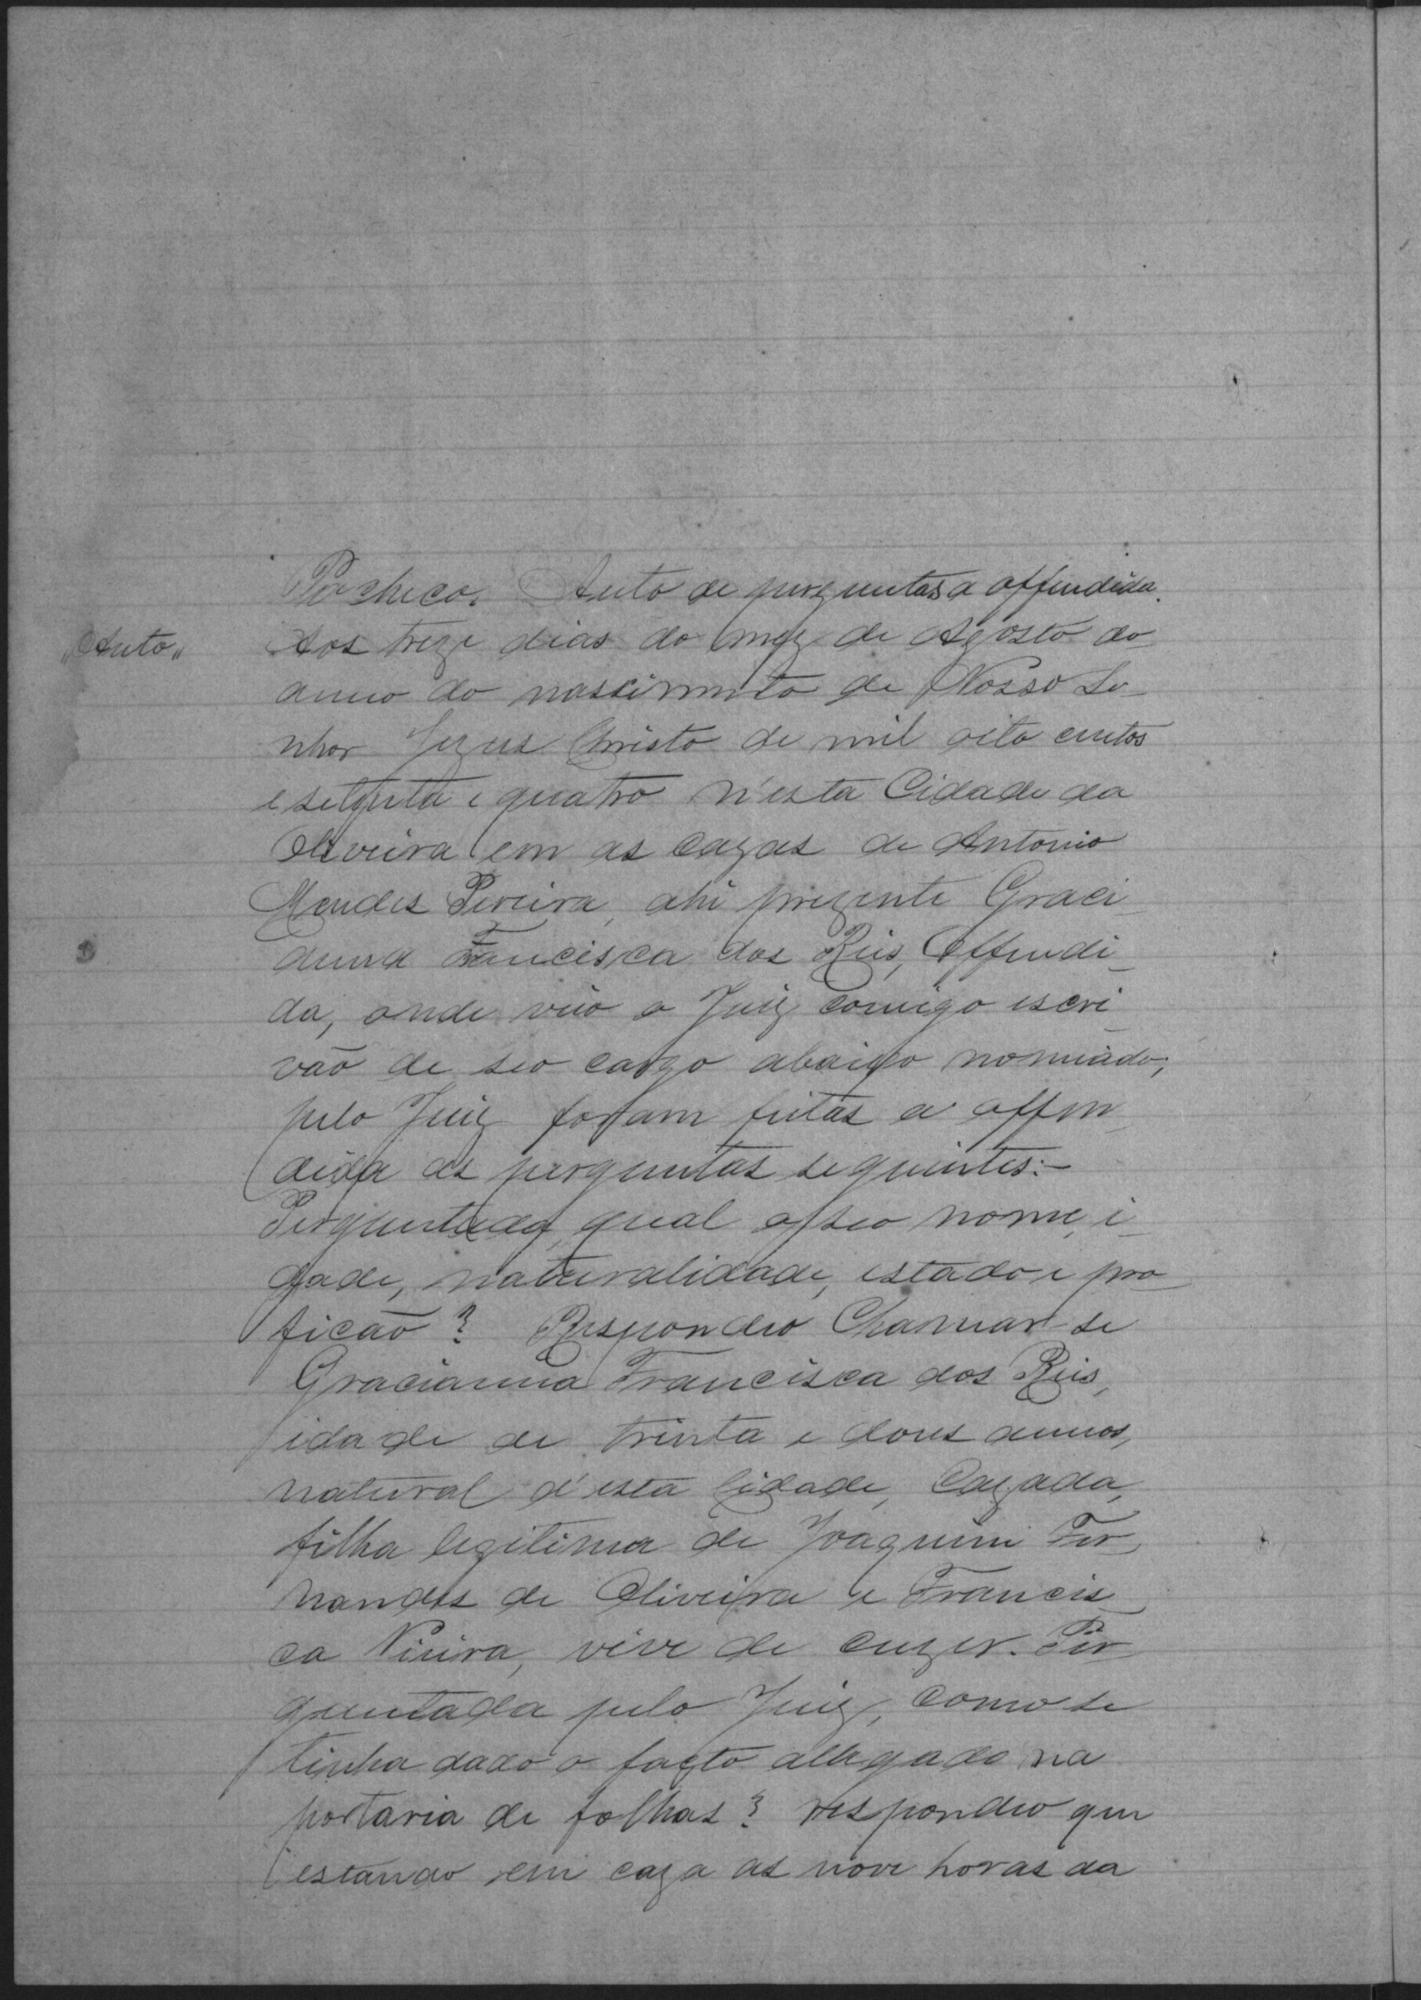 Pacheco. Auto de perguntas a offendida.
"Auto" Aos treze dias do mez de Agosto do
anno do nascimento de Nosso Se-
nhor Jezus Christo de mil oito centos
e setenta e quatro n'esta Cidade da
Oliveira em as cazas de Antonio
Mendes Pereira, ahi prezente Graci-
anna Francisca dos Reis, Offendi-
da, onde veio o Juiz comigo escri-
vão de seo cargo abaixo nomiado,
pelo Juiz foram feitas a offen-
dida as perguntas seguintes:-
Perguntada qual o seo nome, i-
dade, naturalidade, estado e pro-
ficão? Respondeo Chamar-se
Gracianna Francisca dos Reis,
idade de trinta e dous annos,
natural d'esta Cidade, Cazada,
filha legitima de Joaquim Fer-
nandes de Oliveira e Francis-
ca Vieira, vive de cuzer. Per-
guntada pelo Juiz, como se
tinha dado o facto allegado na
portaria de folhas? respondeo que
estando em caza as nove horas da